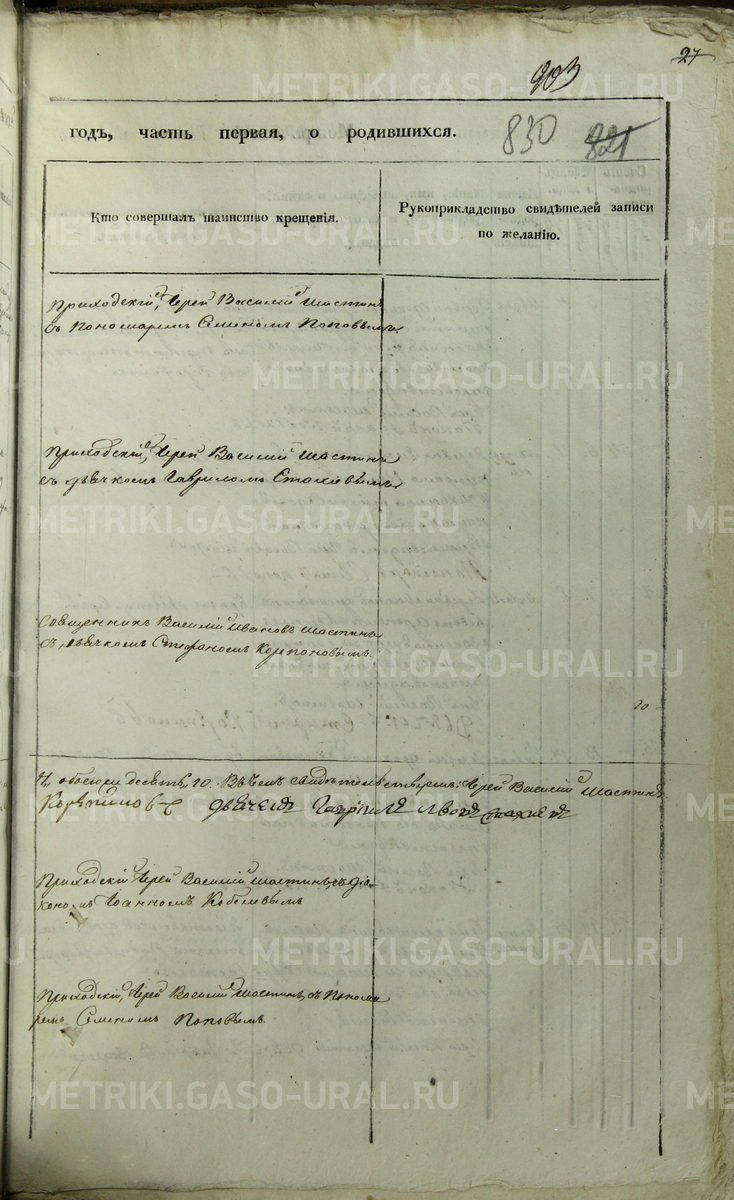 903
27
годъ, часть первая, о родившихся.
830 821
Кто совершалъ таинство крещенія.
Рукоприкладство свидѣтелей записи по желанію.
Приходскій Іерей Василій Шастинъ
съ Пономаремъ Семеномъ Поповымъ
Приходскій Іерей Василій Шастинъ
съ дьячкомъ Гавриломъ
Священникъ Василій Ивановъ Шастинъ
съ дьячкомъ Стефаномъ
10
обоего десять, 10. Въ чемъ свидѣтельствуемъ: Іерей Василій Шастинъ
дьячекъ
Приходскій Іерей Василій Шастинъ, съ діа-
кономъ Іоанномъ
Приходскій Іерей Василій Шастинъ, съ Понома
ремъ Семеномъ Поповымъ
METRIKI.GASO-URAL.RU